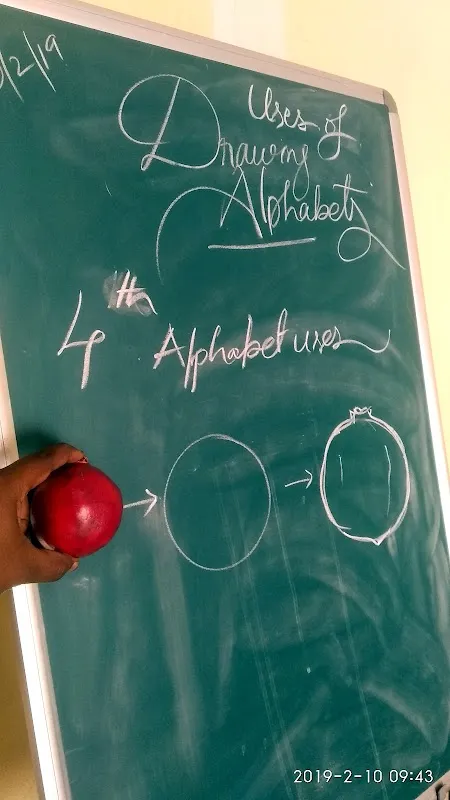 /2/19
Uses of
Drawing
Alphabets
4th Alphabet uses
2019-2-10 09:43